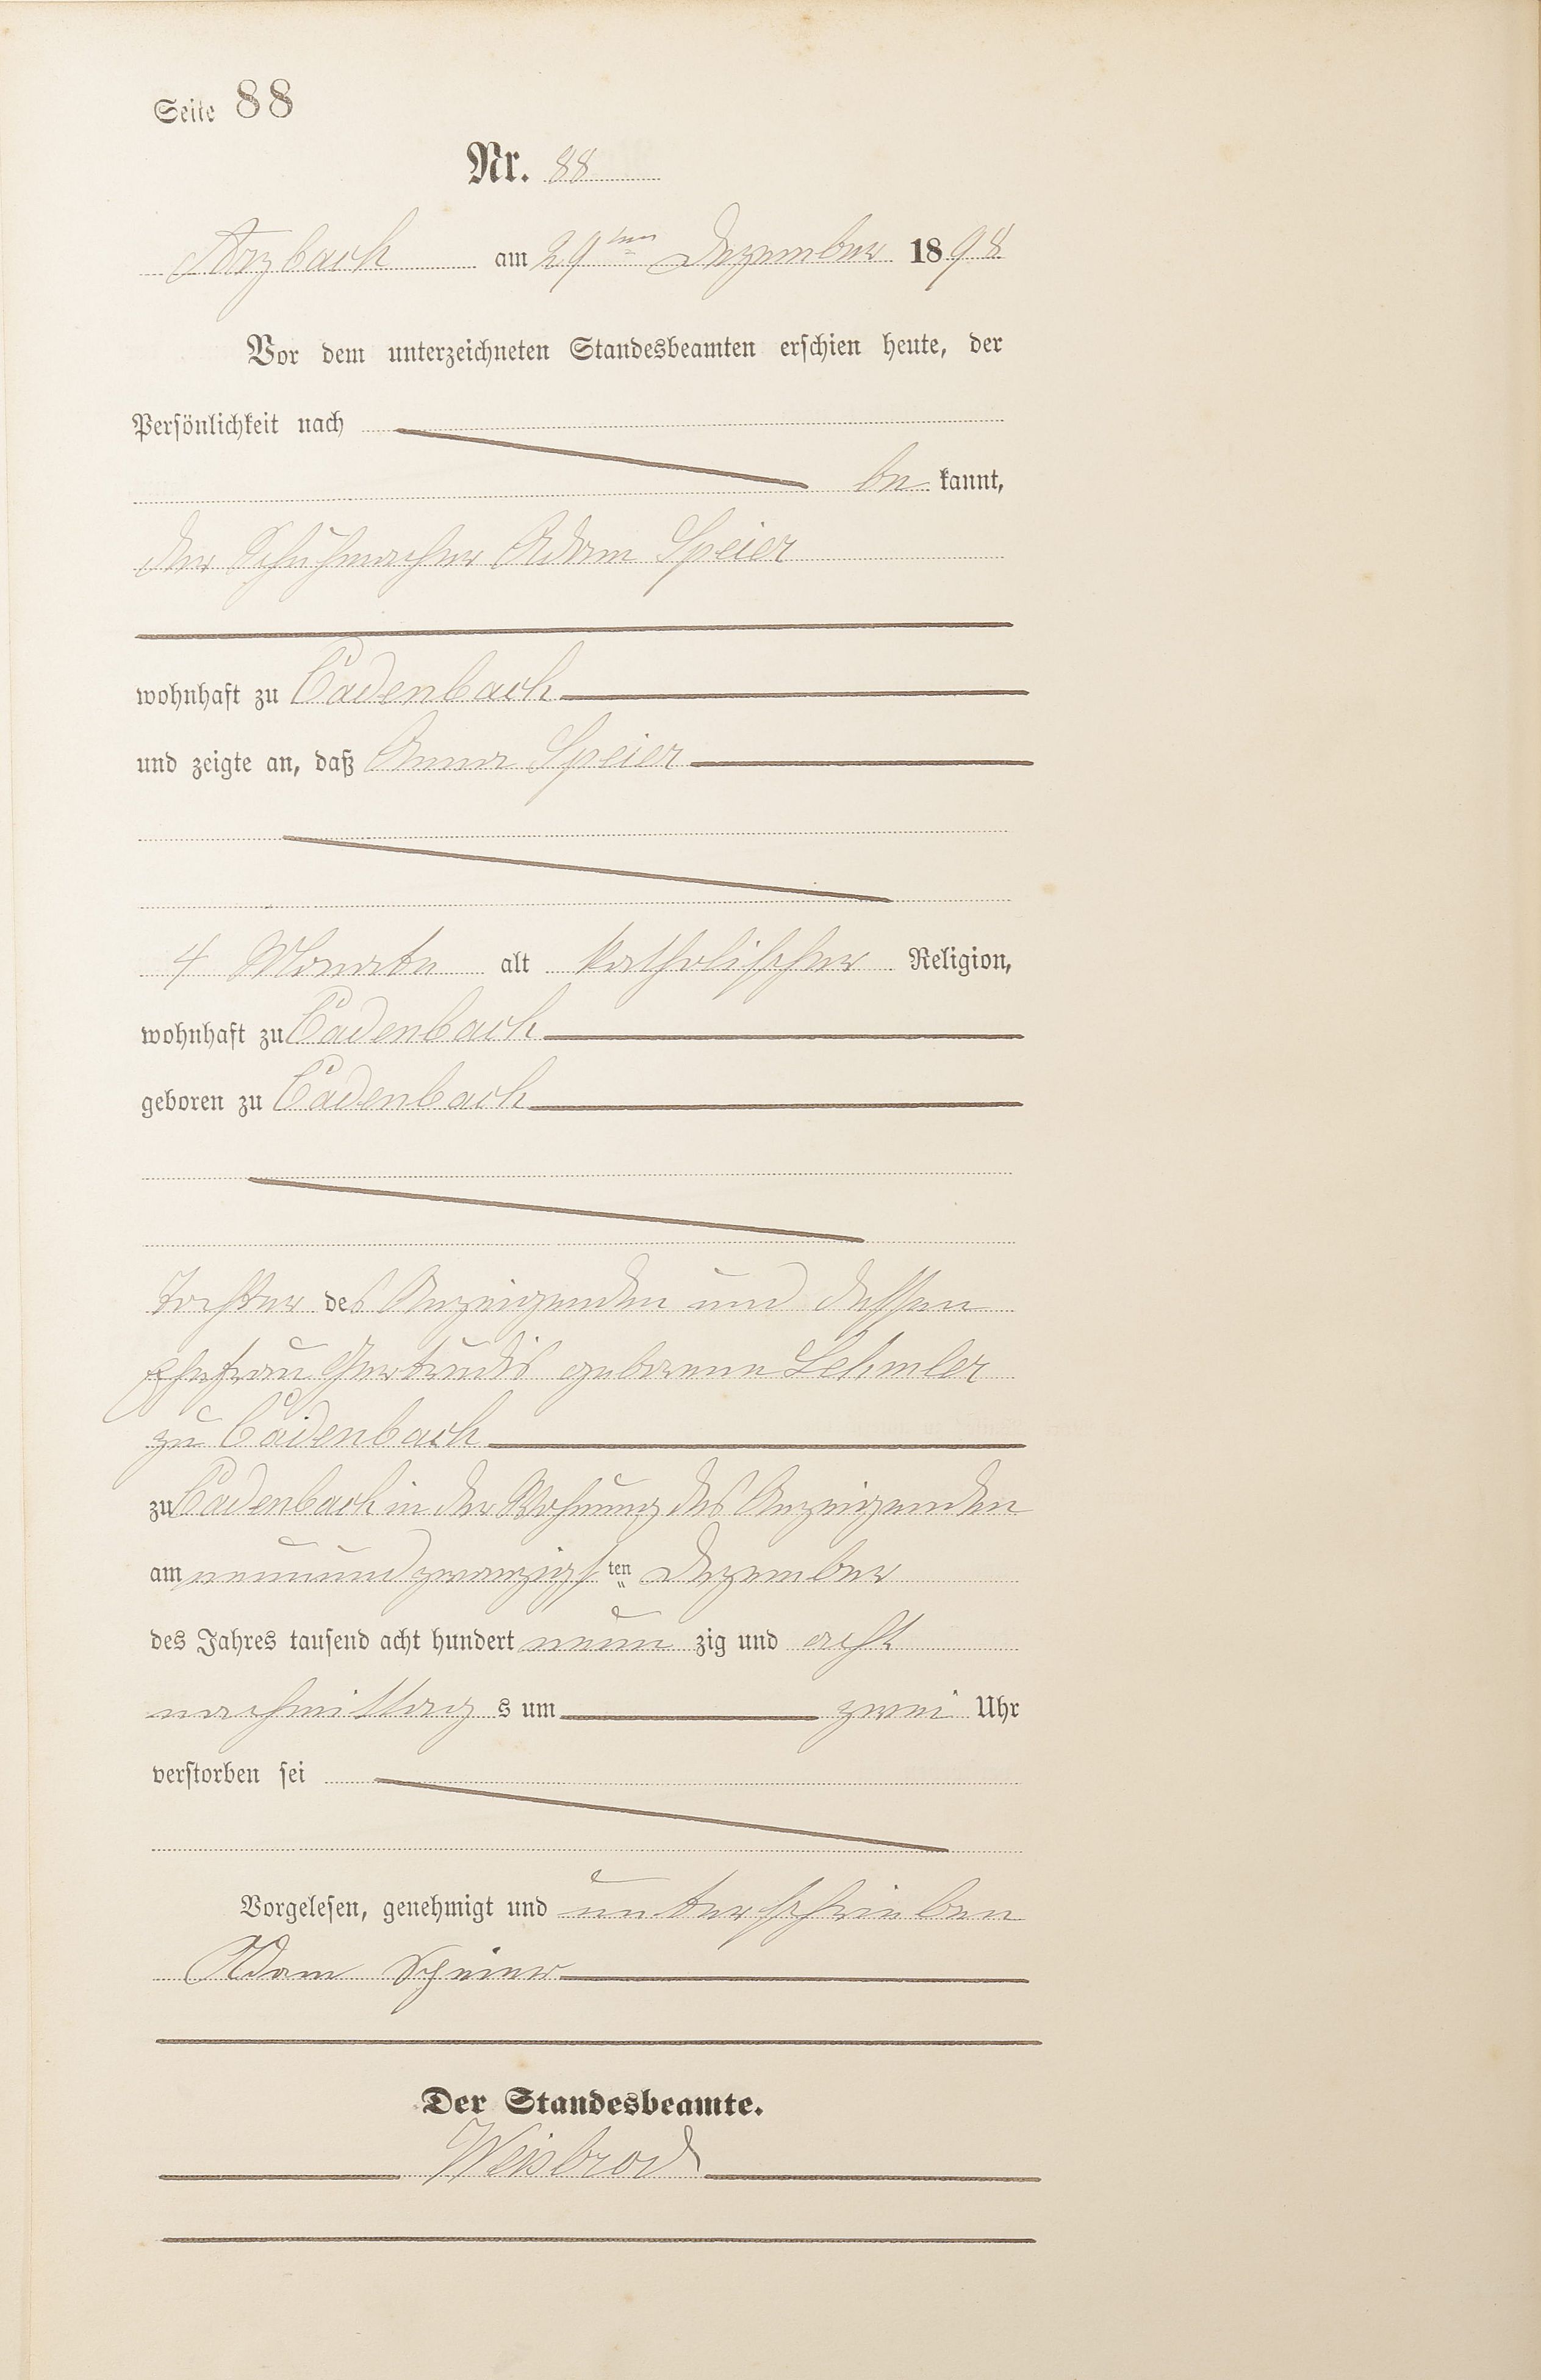 Seite 88
Nr. 88
Arzbach am 29ten Dezember 1898
Vor dem unterzeichneten Standesbeamten erschien heute, der
Persönlichkeit nach
be kannt,
der Schuhmacher Adam Speier
wohnhaft zu Cadenbach
und zeigte an, daß Anna Speier
4 Monate alt katholischer Religion,
wohnhaft zu Cadenbach
geboren zu Cadenbach
Tochter des Anzeigenden und dessen
Ehefrau Gertrudis geborene Lehmler
zu Cadenbach
zu Cadenbach in der Wohnung des Anzeigenden
am neunundzwanzigsten Dezember
des Jahres tausend acht hundert neun zig und acht
nachmittag s um zwei Uhr
verstorben sei
Vorgelesen, genehmigt und unterschrieben
Adam Speier
Der Standesbeamte.
Weisbrod